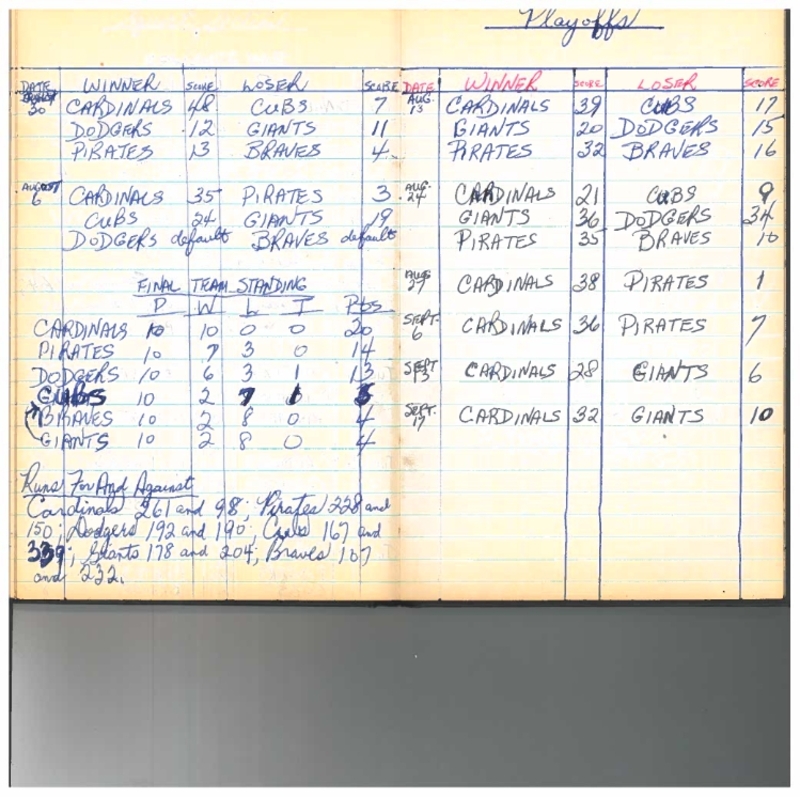 DATE WINNER SCORE LOSER SCORE
30 CARDINALS 48 CUBS 7
DODGERS 12 GIANTS 11
PIRATES 13 BRAVES 4
AUGUST 6 CARDINALS 35 PIRATES 3
CUBS 24 GIANTS 19
DODGERS default BRAVES default
FINAL TEAM STANDING
P W L T Pts
CARDINALS 10 10 0 0 20
PIRATES 10 7 3 0 14
DODGERS 10 6 3 1 13
CUBS 10 2 7 1 5
BRAVES 10 2 8 0 4
GIANTS 10 2 8 0 4
Runs For And Against
Cardinals 261 and 98; Pirates 228 and
150; Dodgers 192 and 190; Cubs 167 and
339; Giants 178 and 204; Braves 107
and 232.
Playoffs
DATE WINNER SCORE LOSER SCORE
AUG. 13 CARDINALS 39 CUBS 17
GIANTS 20 DODGERS 15
PIRATES 32 BRAVES 16
AUG. 24 CARDINALS 21 CUBS 9
GIANTS 36 DODGERS 34
PIRATES 35 BRAVES 10
AUG 27 CARDINALS 38 PIRATES 1
SEPT. 6 CARDINALS 36 PIRATES 7
SEPT 13 CARDINALS 28 GIANTS 6
SEPT. 17 CARDINALS 32 GIANTS 10